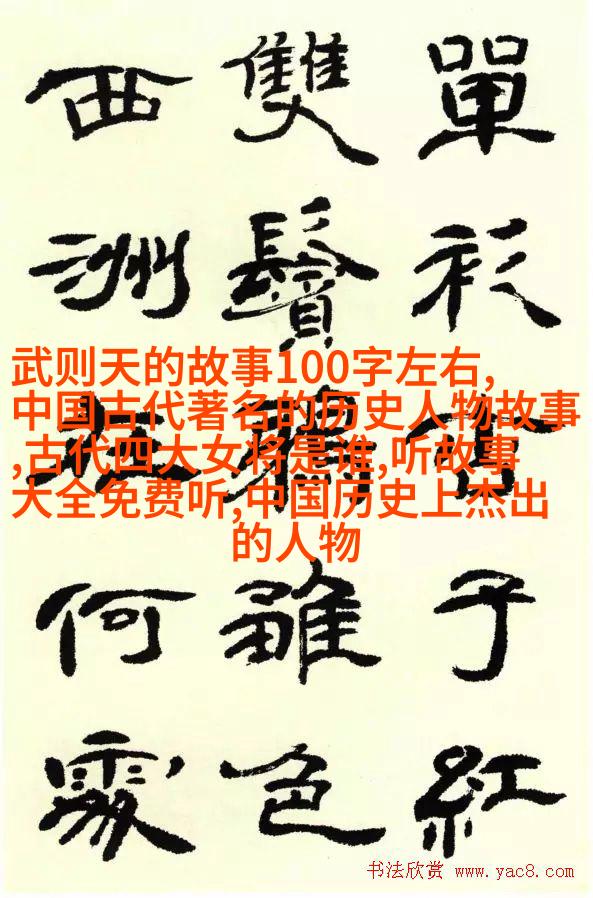 單衫子紅
雙鬢雛色
西洲何處
武则天的故事100字左右,
中国古代著名的历史人物故事
,古代四大女将是谁,听故事
大全免费听,中国历史上杰出
的人物
书法欣赏 www.yac8.com